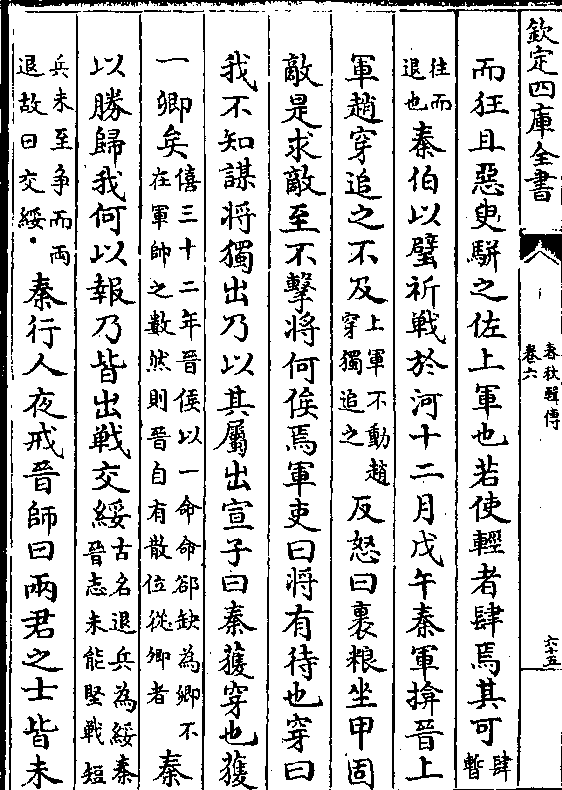 欽定四庫全書
春秋輯傳
卷六
六十五
而狂且惡臾駢之佐上軍也若使輕者肆焉其可肆暫
往而退也秦伯以璧祈戰於河十二月戊午秦軍揜晉上
軍趙穿追之不及上軍不動趙穿獨追之反怒曰裹粮坐甲固
敵是求敵至不擊將何俟焉軍吏曰將有待也穿曰
我不知謀將獨出乃以其屬出宣子曰秦獲穿也獲
一卿矣僖三十二年晉侯以一命命郤缺為卿不在軍帥之數然則晉自有散位從卿者秦
以勝歸我何以報乃皆出戰交綏古名退兵為綏秦晉志未能堅戰短
兵未至争而兩退故曰交綏秦行人夜戒晉師曰兩君之士皆未